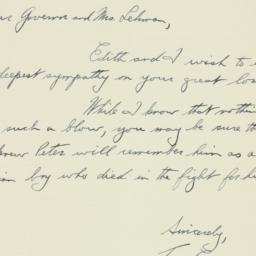 Governor and Mrs. Lehman,
Edith and I wish to
deepest sympathy on your great
While I know that
such a blow, you may be sure
Peter will remember him as a
boy who died in the fight for
Sincerely,